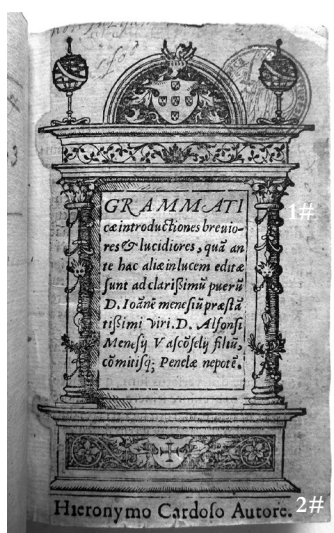 GRAMMATI
cæ introductiones breuio-
res & lucidiores, quã an
te hac aliæ in lucem editæ
ſunt ad clarißimũ puerũ
D. Ioãnẽ meneſiũ præſtã
tißimi viri. D. Alfonſi
Meneſij Vaſcõſelij filiũ,
cõmitisq; Penelæ nepotẽ.
1#
Hieronymo Cardoſo Autore.
2#